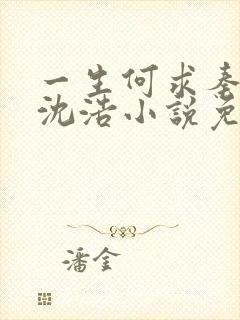 一生何求秦
沈浩小説免
潘金